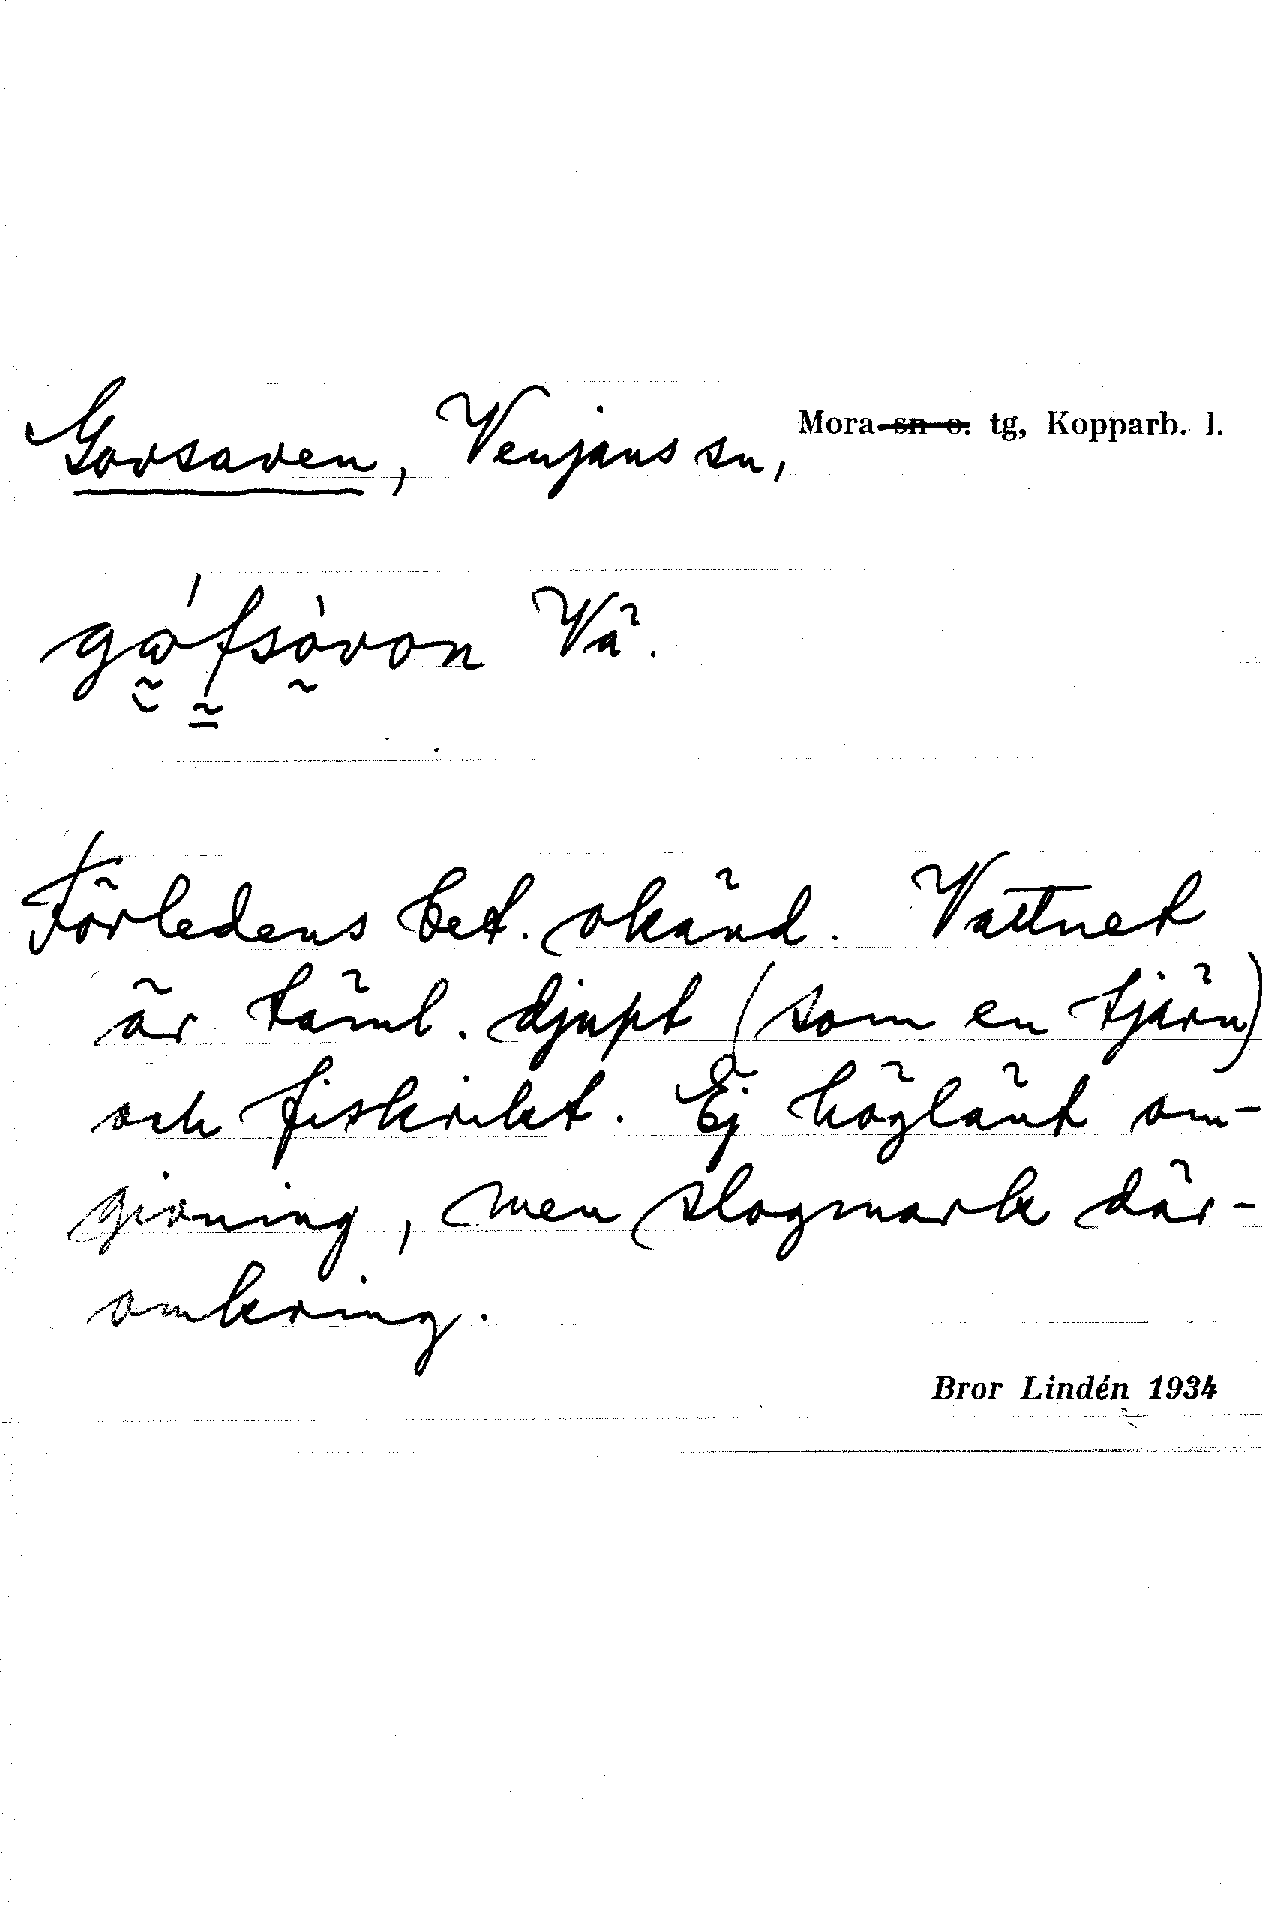 Govsaven, Venjans sn, Mora sn o. tg, Kopparb. l.
gófsòvon Vä.
Förledens bet. okänd. Vattnet
är täml. djupt (som en tjärn)
och fiskrikt. Ej högländ om-
givning, men slogmark där-
omkring.
Bror Lindén 1934